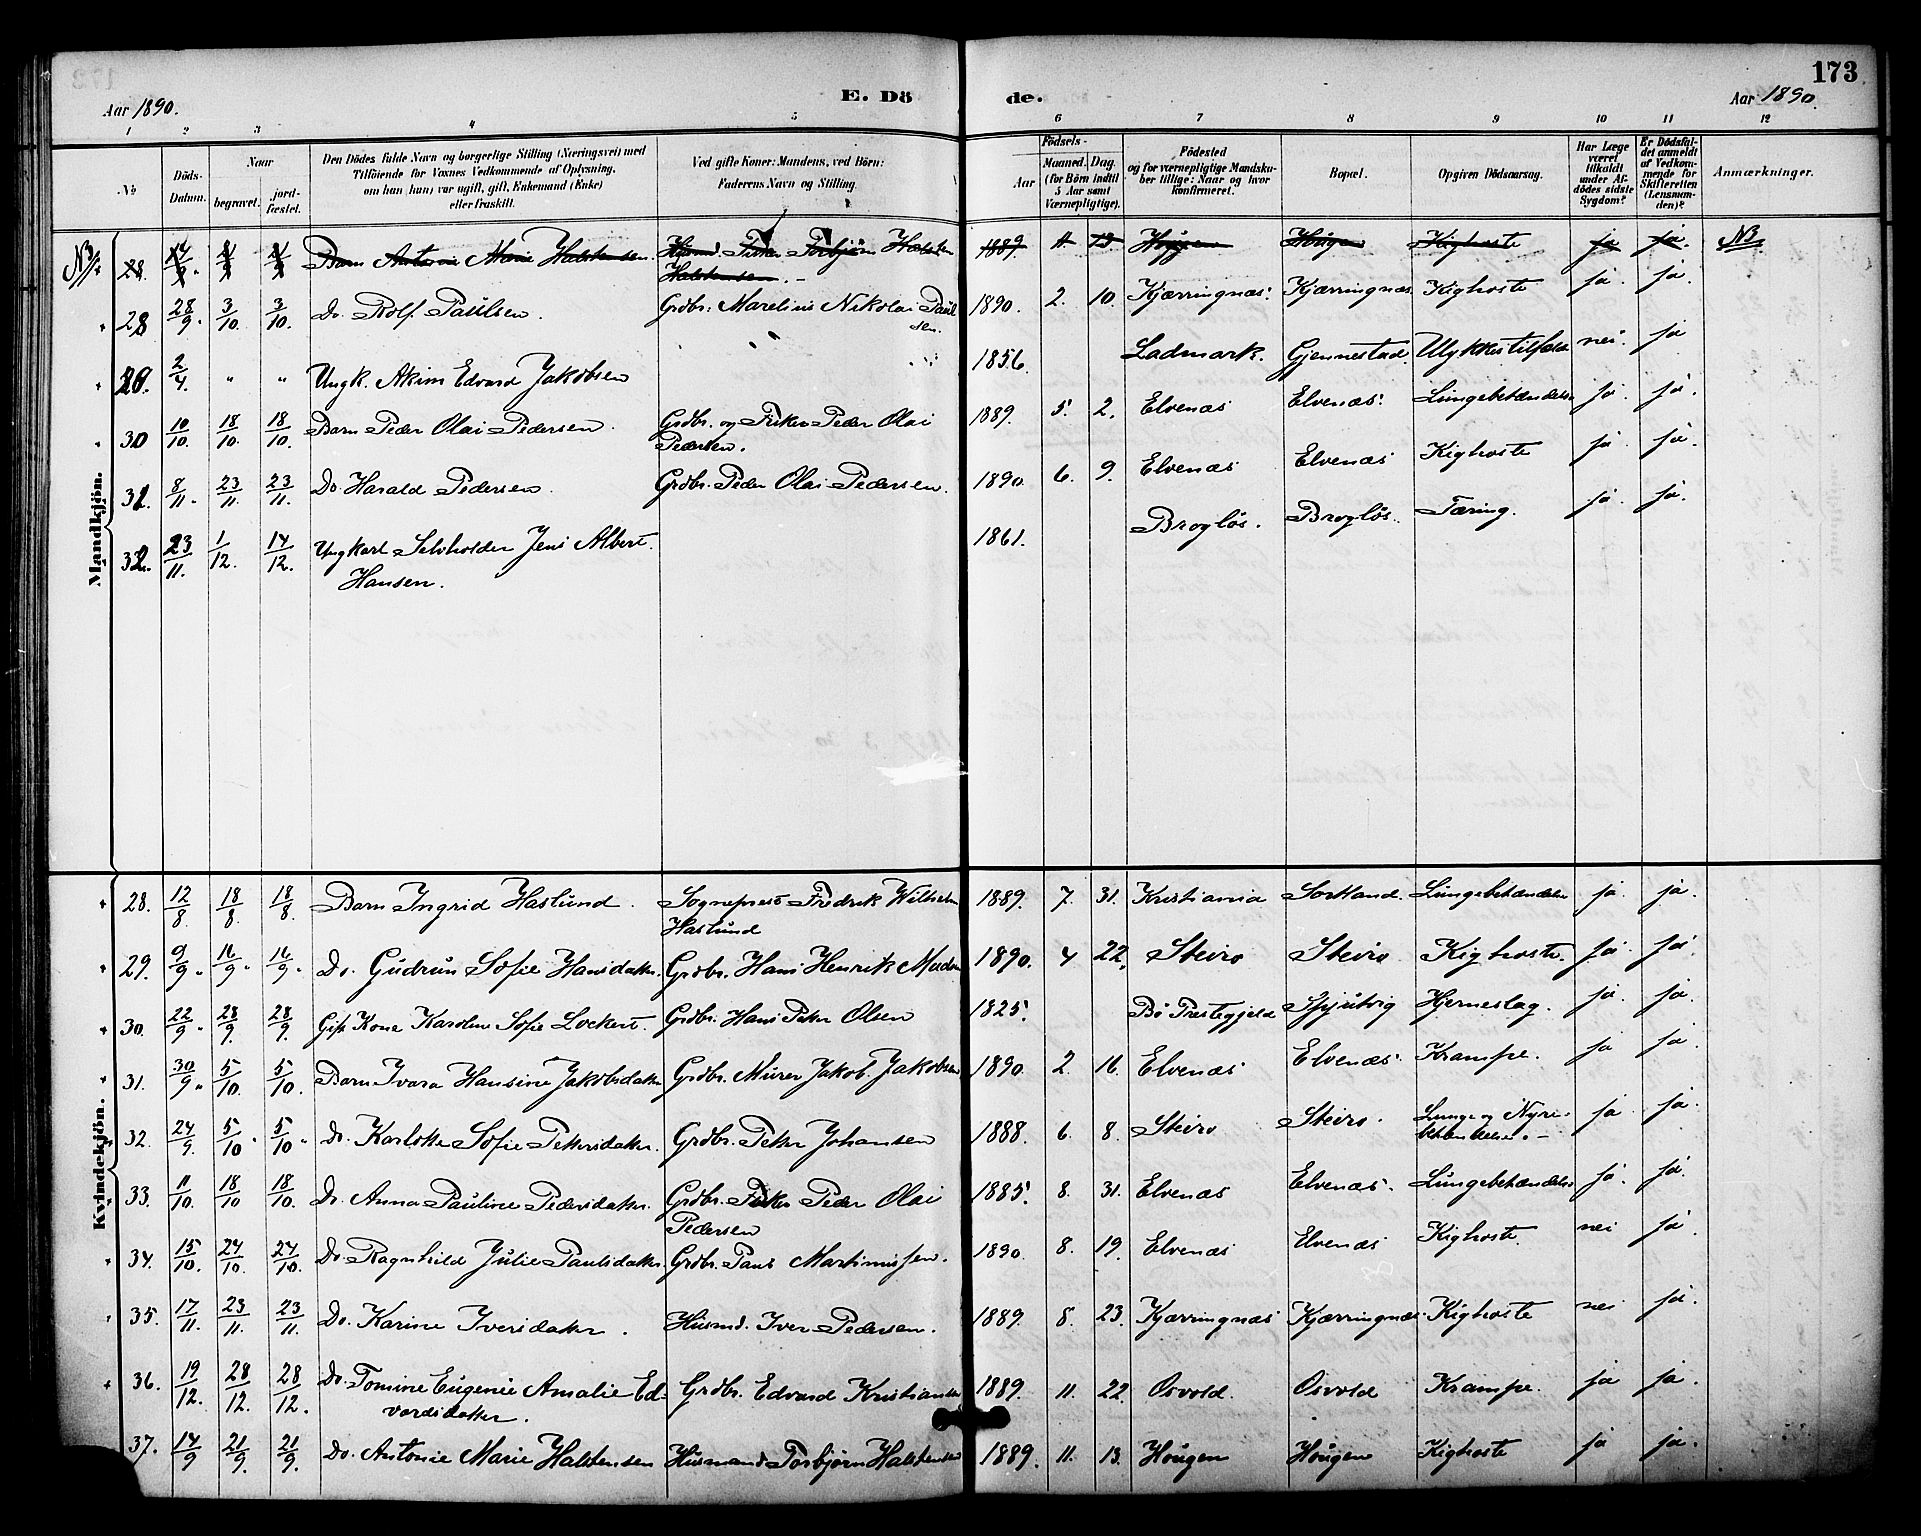 173
Aar 1890. E. Dö de. Aar 1890.
1 2 3 4 5 6 7 8 9 10 11 12
No. Döds-Datum. Naar begravet. jord-fæstet. Den Dödes fulde Navn og borgerlige Stilling (Næringsvei) med Tilföiende for Voxnes Vedkommende af Oplysning, om han (hun) var ugift, gift, Enkemand (Enke) eller fraskilt. Ved gifte Koner: Mandens, ved Börn: Faderens Navn og Stilling. Födsels- Aar Maaned. Dag. (for Börn indtil 5 Aar samt Værnepligtige). Födested og for værnepligtige Mandskaber tillige: Naar og hvor konfirmeret. Bopæl. Opgiven Dödsaarsag. Har Læge været tilkaldt under Afdödes sidste Sygdom? Er Dödsfaldet anmeldt af Vedkommende for Skifteretten (Lensmanden)? Anmærkninger.
Mandkjön.
NB. 28. 14/9. Barn Antonie Marie Halstensen. Husmd. Torbjörn Halstensen. 1889 11 13 Hougen Hougen Kighoste ja ja. NB.
28 28/9. 3/10. 3/10. Do. Rolf Paulsen. Grdbr. Marelius Nikolai Paulsen. 1890. 2. 10. Kjærringnæs. Kjærringnæs. Kighoste ja. ja.
29. 2/4. " " Ungk. Akim Edvard Jakobsen 1856. Ladmark. Gjennestad. Ulykkestilfælde nei. ja
30 10/10. 18/10. 18/10. Barn Peder Olai Pedersen. Grdbr. og Fisker Peder Olai Pedersen. 1889. 5. 2. Elvenæs Elvenæs. Lungebetændelse ja. ja.
31. 8/11. 23/11. 23/11. Do. Harald Pedersen. Grdbr. Peder Olai Pedersen. 1890 6. 9. Elvenæs Elvenæs Kighoste ja. ja.
32. 23/11. 1/12. 14/12. Ungkarl Selvholder Jens Albert Hansen. 1861. Brogløs. Brogløs. Tæring. ja. ja.
Kvindekjön.
28. 12/8. 18/8. 18/8. Barn Ingrid Haslund. Sogneprest Fredrik Wilhelm Haslund 1889. 7. 31. Kristiania Sortland. Lungebetændelse ja. ja.
29. 9/9. 16/9. 16/9. Do. Gudrun Sofie Hansdatter. Grdbr. Hans Henrik 1890. 4 22. Steiro Steiro Kighoste. ja. ja.
30. 22/9. 28/9. 28/9. Gift Kone Karoline Sofie Lockert. Grdbr. Hans Peter Olsen 1825. Bö Præstegjeld Hjerneslag. ja. ja.
31. 30/9. 5/10. 5/10. Barn Ivara Hansine Jakobsdatter Grdbr. Murer Jakob Jakobsen 1890. 2. 16. Elvenæs Elvenæs. Krampe. ja ja.
32. 24/9. 5/10. 5/10. Do. Karlotte Sofie Petersdatter. Grdbr. Peter Johansen 1888. 6. 8. Steiro Steiro. Lunge og Nyrebetændelse. ja. ja.
33. 11/10. 18/10. 18/10. Do. Anna Pauline Pedersdatter. Grdbr. Fisker Peder Olai Pedersen 1885. 8. 31. Elvenæs Elvenæs. Lungebetændelse ja. ja.
34. 15/10. 24/10. 24/10. Do. Ragnhild Julie Paulsdatter Grdbr. Paul Martinussen. 1890. 8. 19. Elvenæs Elvenæs Kighoste. nei ja.
35. 17/11. 23/11. 23/11. Do. Karine Iversdatter. Husmd. Iver Pedersen. 1889. 8. 23. Kjærringnæs Kjærringnæs. Kighoste nei ja.
36. 19/12. 28/12. 28/12. Do. Tomine Eugenie Amalie Edvardsdatter. Grdbr. Edvard Kristiansen 1889. 11. 22. Osvold. Osvold Krampe. ja ja.
37. 14/9 21/9. 21/9. Do. Antonie Marie Halstensen Husmand Torbjörn Halstensen 1889. 11. 13. Hougen Hougen Kighoste ja ja.